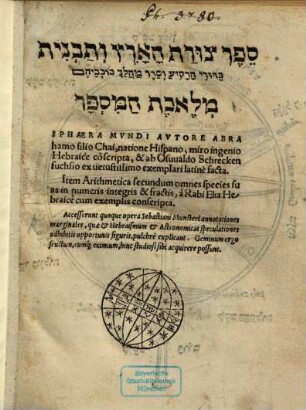 Ph. 3780.
ספר צורת הארץ ותבנית
כדורי הרקיע וסדר מהלך כוכביהם
מלאכת המספר
SPHÆRA MVNDI AVTORE ABRA
hamo filio Chai, natione Hispano, miro ingenio
Hebraicè cōscripta, & ab Osuualdo Schrecken
fuchsio ex uetustissimo exemplari latinè facta.
Item Arithmetica secundum omnes species su
as in numeris integris & fractis, à Rabi Elia He
braicè cum exemplis conscripta.
Accesserunt quoque opera Sebastiani Munsteri annotationes
marginales, quæ & Hebraismum & Astronomicas speculationes
adhibitis opportunis figuris, pulchrè explicant. Geminum ergo
fructum, eumque eximium, hinc studiosi sibi acquirere possunt.
Bayerische
Staatsbibliothek
München